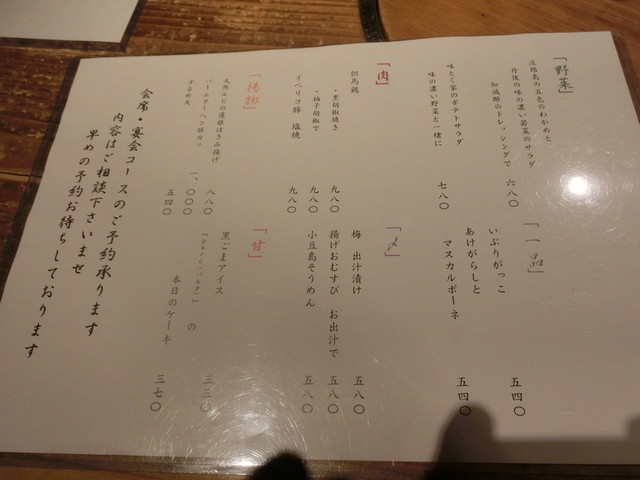 「野菜」
淡路島の五色のわかめと
丹後の味の濃い若菜のサラダ
加減酢のドレッシングで 六八〇
味とく家のポテトサラダ
味の濃い野菜と一緒に 七八〇
「肉」
但馬鶏
・黒胡椒焼き 九八〇
・柚子胡椒で 九八〇
イベリコ豚 塩焼 九八〇
「揚物」
天然エビの蓮根はさみ揚げ 八八〇
バームクーヘン豚カツ 一、〇〇〇
するめ天 五四〇
「一品」
いぶりがっこ 五四〇
あけがらしと
マスカルポーネ 五四〇
「〆」
梅 出汁漬け 五八〇
揚げおむすび お出汁で 五八〇
小豆島そうめん 五八〇
「甘」
黒ごまアイス 三三〇
の
本日のケーキ 三七〇
会席・宴会コースのご予約承ります
内容はご相談下さいませ
早めの予約お待ちしております